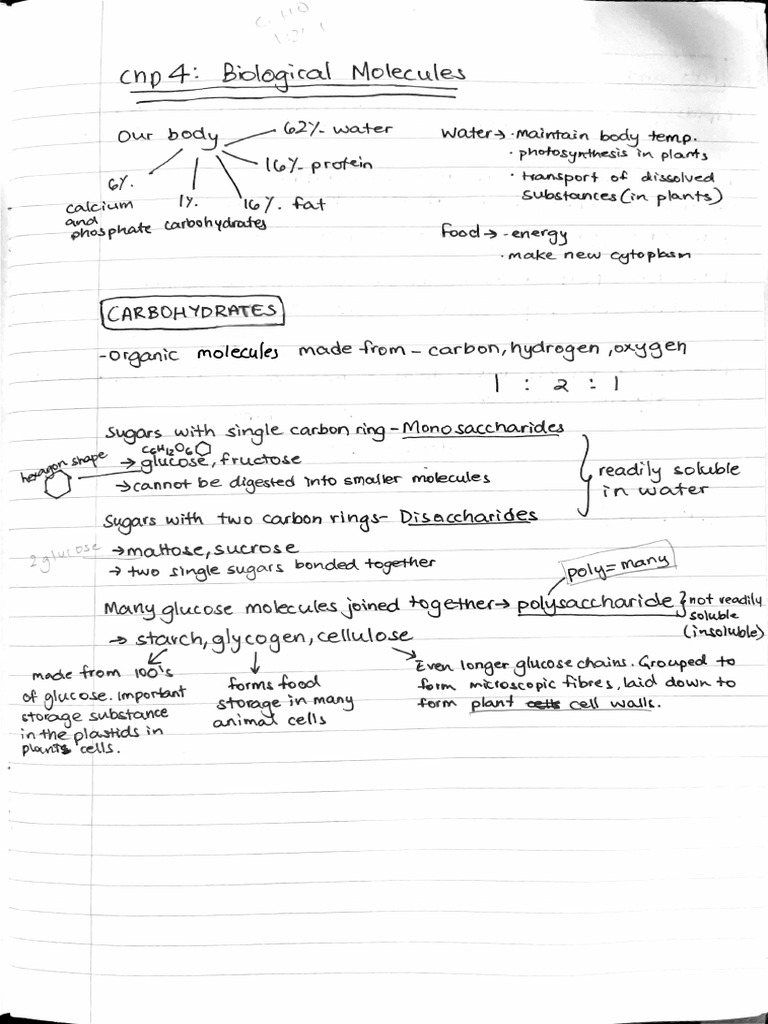 C H O
1:2:1
chp 4: Biological Molecules
our body
62% water
16% protein
16% fat
1%
carbohydrates
6%
calcium
and
phosphate
Water → · maintain body temp.
· photosynthesis in plants
· transport of dissolved
substances (in plants)
Food → · energy
· make new cytoplasm
CARBOHYDRATES
- organic molecules made from - carbon, hydrogen, oxygen
1 : 2 : 1
Sugars with single carbon ring - Monosaccharides
C6H12O6
hexagon shape
→ glucose, fructose
→ cannot be digested into smaller molecules
Sugars with two carbon rings - Disaccharides
readily soluble
in water
2 glucose
→ maltose, sucrose
→ two single sugars bonded together
poly = many
Many glucose molecules joined together → polysaccharide
not readily
soluble
(insoluble)
→ starch, glycogen, cellulose
made from 100's
of glucose. Important
storage substance
in the plastids in
plants cells.
forms food
storage in many
animal cells
Even longer glucose chains. Grouped to
form microscopic fibres, laid down to
form plant cells cell walls.